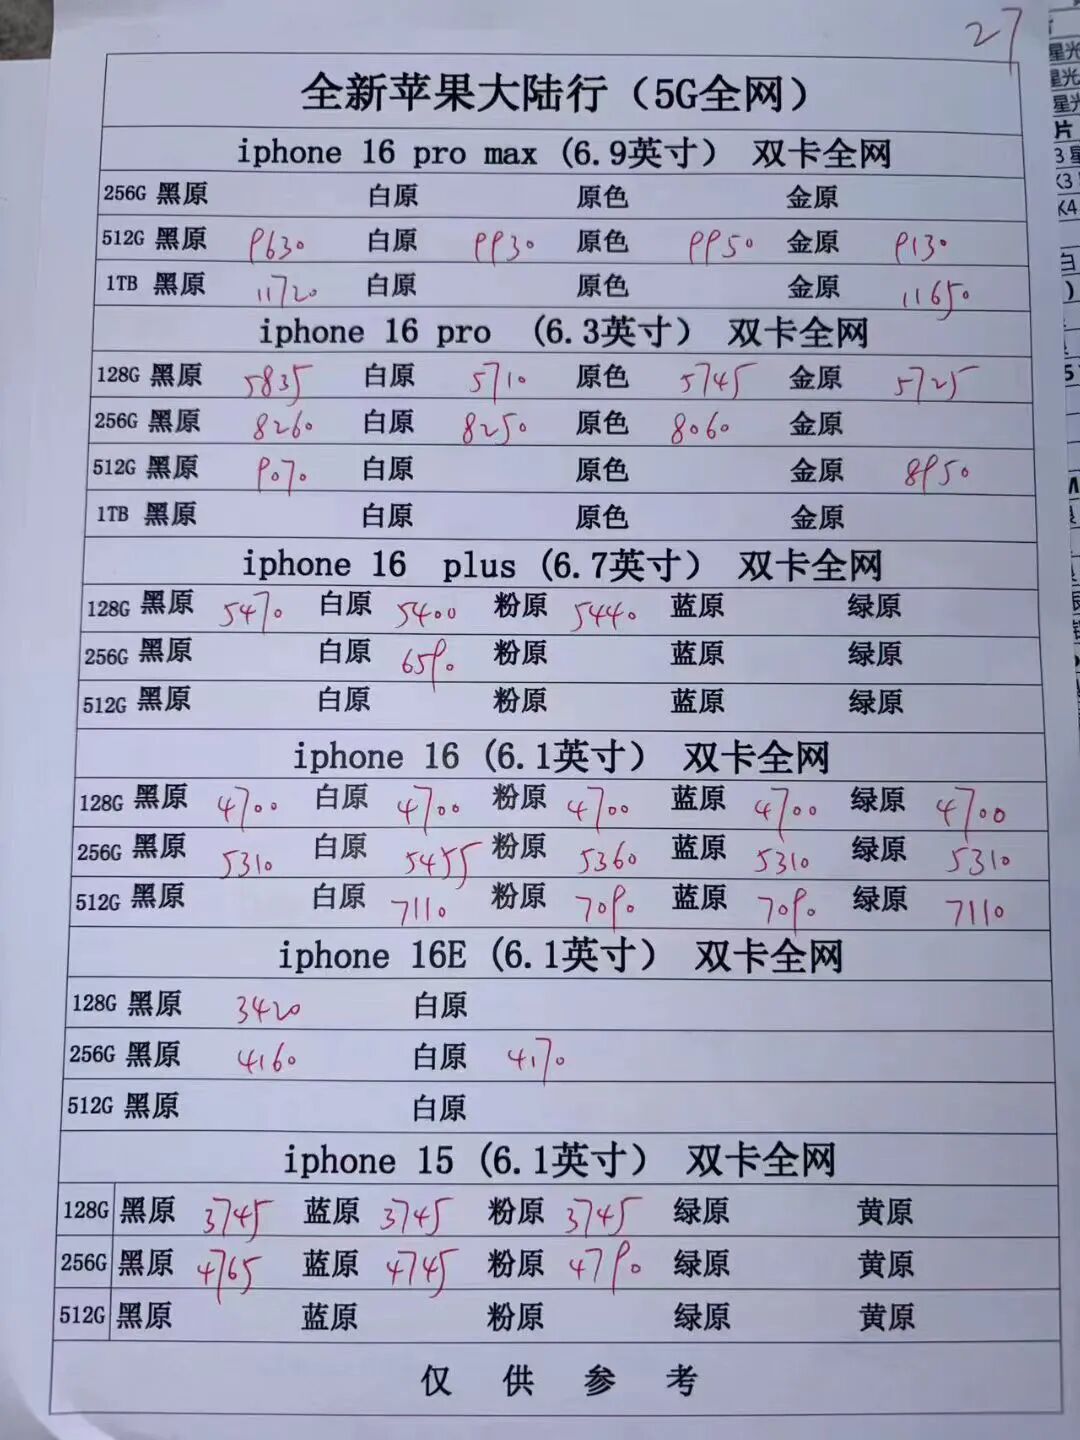 27
全新苹果大陆行（5G全网）
iphone 16 pro max (6.9英寸） 双卡全网
256G 黑原 白原 原色 金原
512G 黑原 9630 白原 9930 原色 9950 金原 9130
1TB 黑原 11720 白原 原色 金原 11650
iphone 16 pro (6.3英寸） 双卡全网
128G 黑原 5835 白原 5710 原色 5745 金原 5725
256G 黑原 8260 白原 8250 原色 8060 金原
512G 黑原 9070 白原 原色 金原 8950
1TB 黑原 白原 原色 金原
iphone 16 plus (6.7英寸） 双卡全网
128G 黑原 5470 白原 5400 粉原 5440 蓝原 绿原
256G 黑原 白原 6590 粉原 蓝原 绿原
512G 黑原 白原 粉原 蓝原 绿原
iphone 16 (6.1英寸） 双卡全网
128G 黑原 4700 白原 4700 粉原 4700 蓝原 4700 绿原 4700
256G 黑原 5310 白原 5455 粉原 5360 蓝原 5310 绿原 5310
512G 黑原 白原 7110 粉原 7090 蓝原 7090 绿原 7110
iphone 16E (6.1英寸） 双卡全网
128G 黑原 3420 白原
256G 黑原 4160 白原 4170
512G 黑原 白原
iphone 15 (6.1英寸） 双卡全网
128G 黑原 3745 蓝原 3745 粉原 3745 绿原 黄原
256G 黑原 4765 蓝原 4745 粉原 4790 绿原 黄原
512G 黑原 蓝原 粉原 绿原 黄原
仅 供 参 考
星光
星光
星光
片
3 星
K3
K4
白